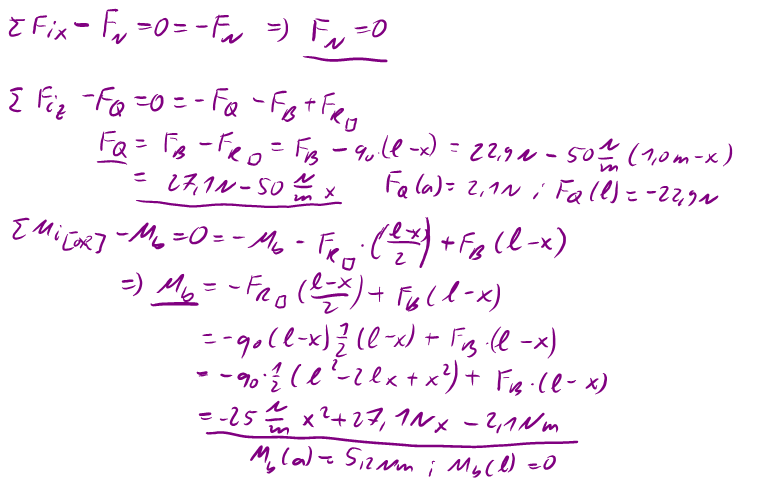 ΣF_ix - F_N = 0 = -F_N => F_N = 0
ΣF_iz - F_Q = 0 = -F_Q - F_B + F_R□
F_Q = F_B - F_R□ = F_B - q₀(l-x) = 22,9N - 50 N/m (1,0m-x)
= 27,1N - 50 N/m x F_Q(a) = 2,1N ; F_Q(l) = -22,9N
ΣM_i[OR] - M_b = 0 = -M_b - F_R□ · ((l-x)/2) + F_B(l-x)
=> M_b = -F_R□ ((l-x)/2) + F_B(l-x)
= -q₀(l-x) 1/2 (l-x) + F_B·(l-x)
= -q₀·1/2 (l²-2lx+x²) + F_B·(l-x)
= -25 N/m x² + 27,1Nx - 2,1Nm
M_b(a) = 5,12Nm ; M_b(l) = 0